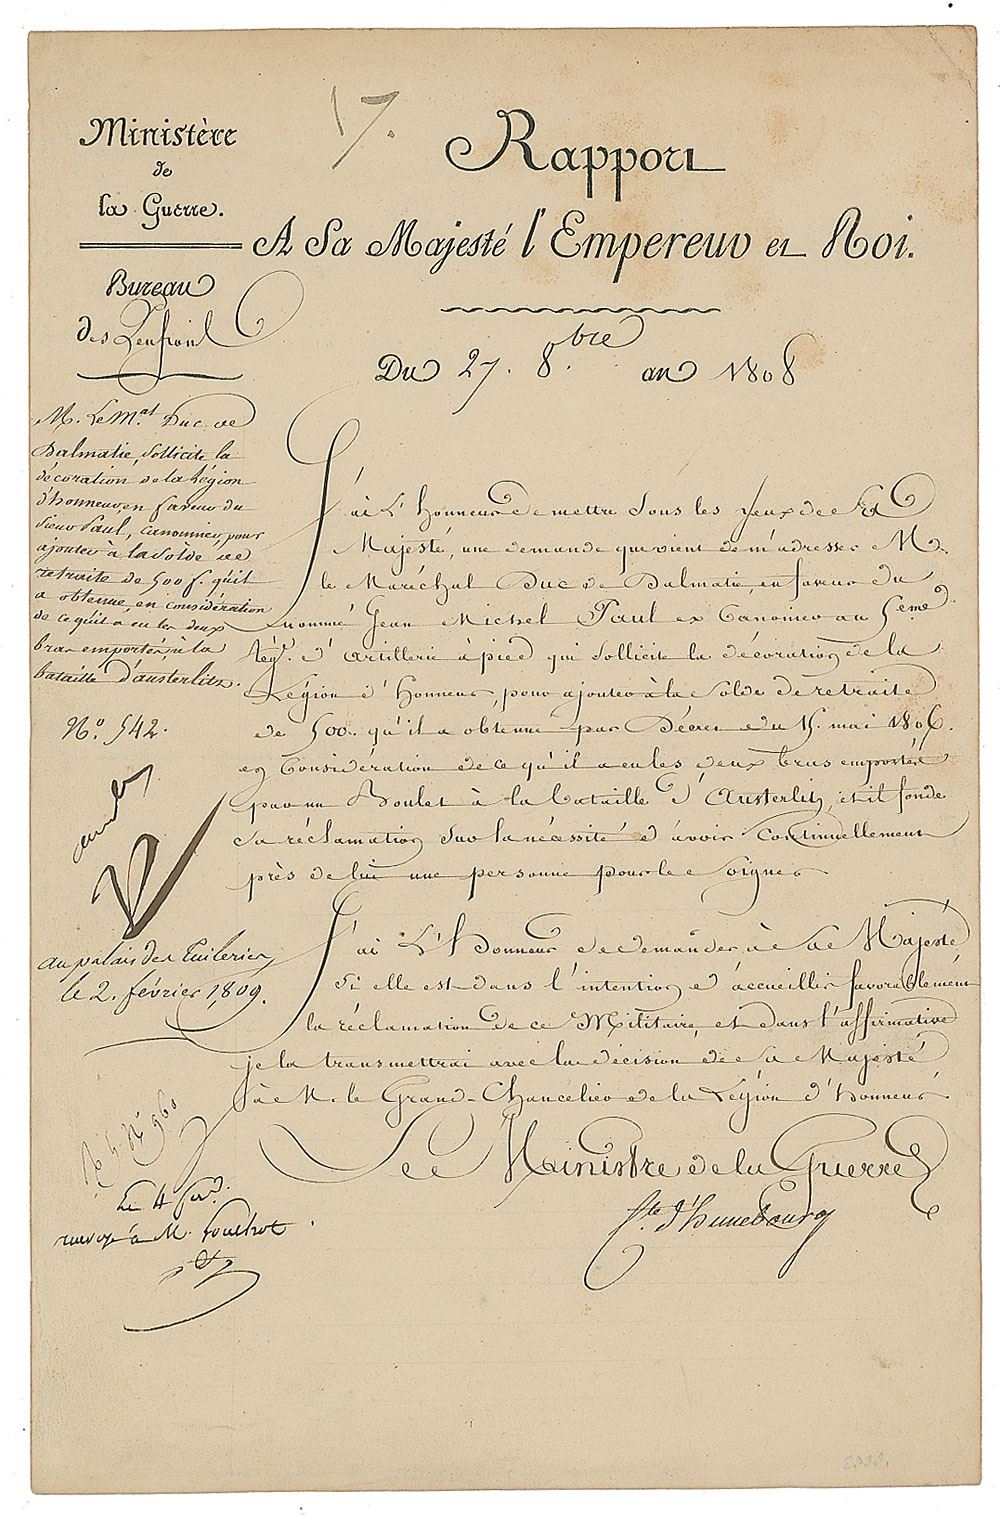 17.
Ministère
de
la Guerre.
Bureau
des
Rapport
A Sa Majesté l'Empereur et Roi.
Du 27. 8.bre an 1808
M. Le Mal. Duc de
Dalmatie, sollicite la
décoration de la Légion
d'honneur, en faveur du
Sieur Paul, canonnier, pour
ajouter à la Solde de
retraite de 500 f. qu'il
a obtenue, en considération
de ce qu'il a eu les deux
bras emportés, à la
bataille d'austerlitz.
No. 542.
J'ai L'honneur de mettre sous les yeux de Sa
Majesté, une demande que vient de m'adresser M.
le Maréchal Duc de Dalmatie, en faveur du
nommé Jean Michel Paul ex Canonier au 5.eme
Régt. d'artillerie à pied qui sollicite la décoration de la
Légion d'Honneur, pour ajouter à la Solde de retraite
de 500. qu'il a obtenue par Décret du 15. mai 1806.
en Considération de ce qu'il a eu les deux bras emportés
par un Boulet à la bataille d'Austerlitz, et il fonde
sa réclamation sur la nécessité d'avoir continuellement
près de lui une personne pour le soigner
J'ai L'honneur de demander à Sa Majesté
si elle est dans l'intention d'accueillir favorablement
la réclamation de ce Militaire, et dans l'affirmative
je la transmettrai avec la décision de Sa Majesté
à M. le Grand-Chancelier de la Légion d'honneur
Le Ministre de la Guerre
Cte d'hunebourg
accordé
N
au palais des Tuileries
le 2. février 1809.
Le 4
renvoyé à M.